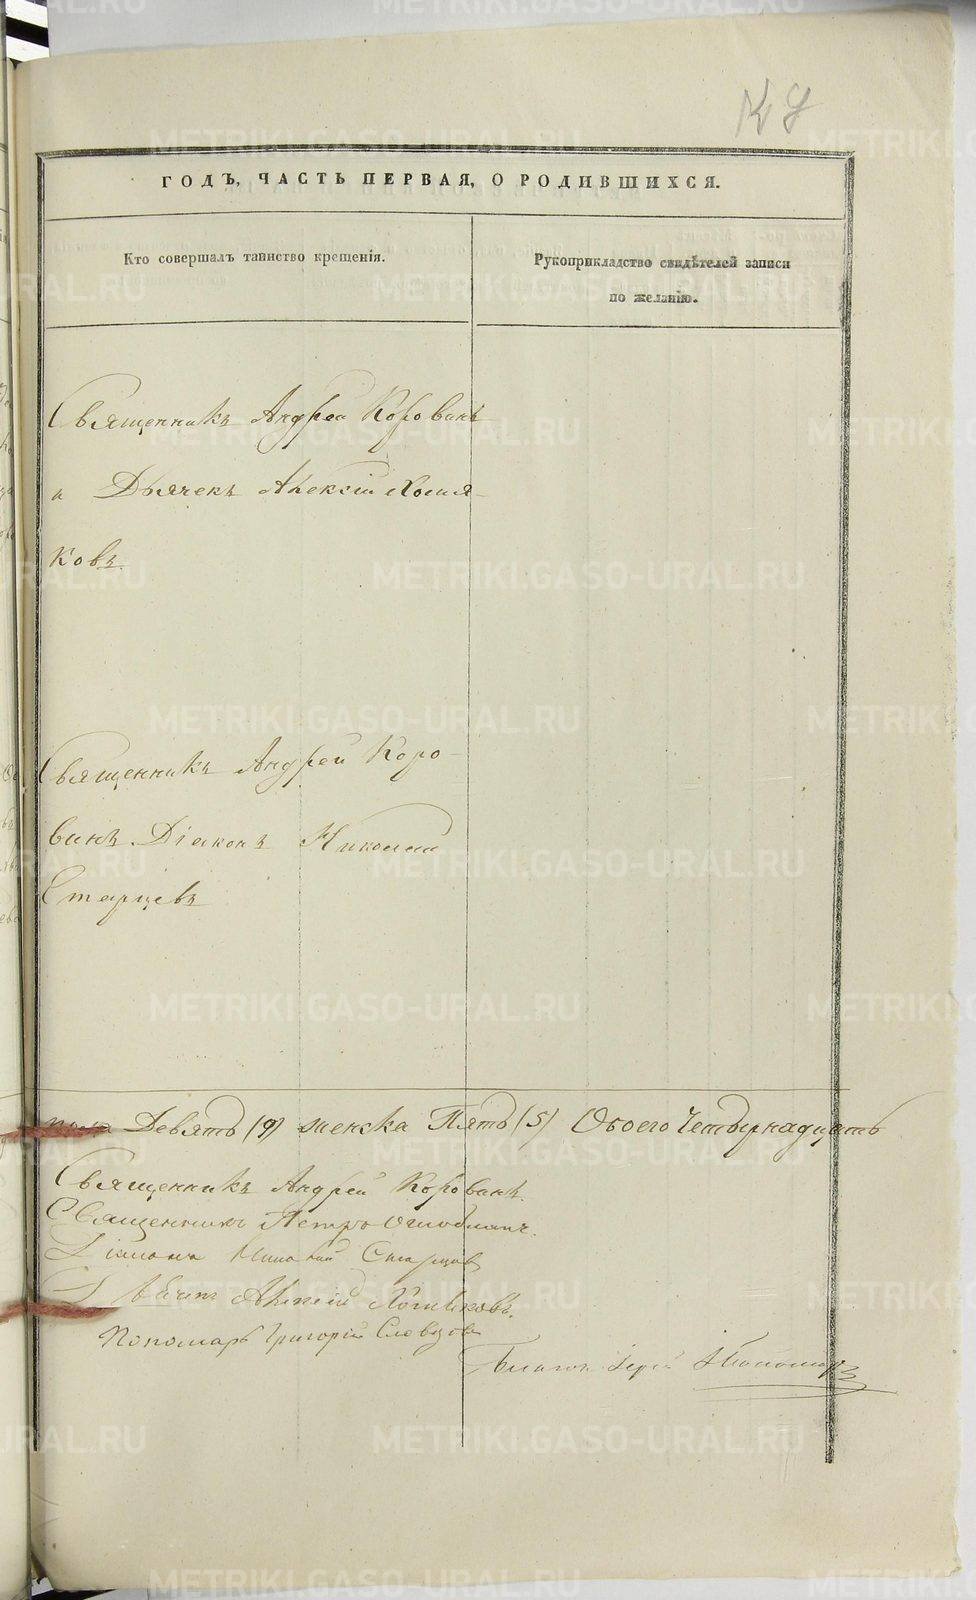 ГОДЪ, ЧАСТЬ ПЕРВАЯ, О РОДИВШИХСЯ.
Кто совершалъ таинство крещенія.
Рукоприкладство свидѣтелей записи
по желанію.
Священникъ Андрей Коровинъ
и Дьячекъ Алексій Хомя-
ковъ.
Священникъ Андрей Коро-
винъ Діаконъ Николай
Старцевъ
Девять (9) женска Пять (5) Обоего Четырнадцать
Священникъ Андрей Коровинъ.
Священникъ Петръ
Діаконъ Николай Старцевъ
Дьячекъ Алексій Хомяковъ.
Пономарь Григорій Словцовъ
METRIKI.GASO-URAL.RU